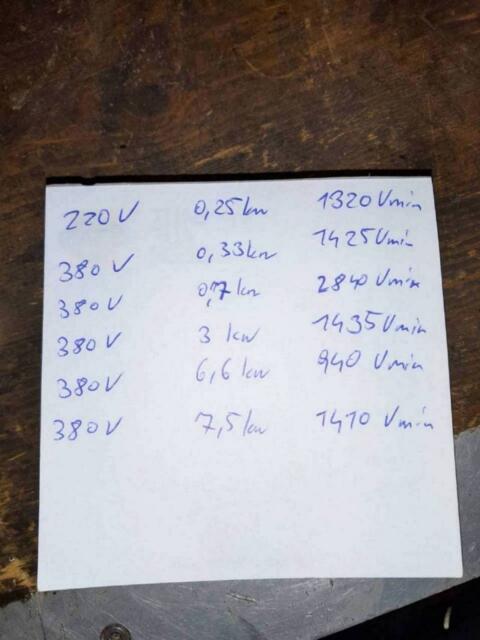 220 V 0,25 kw 1320 Vmin
380 V 0,33 kw 1425 Vmin
380 V 0,7 kw 2840 Vmin
380 V 3 kw 1435 Vmin
380 V 6,6 kw 940 Vmin
380 V 7,5 kw 1410 Vmin